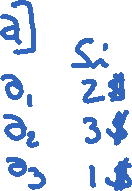 a]
Si
a₁ 2$
a₂ 3$
a₃ 1$